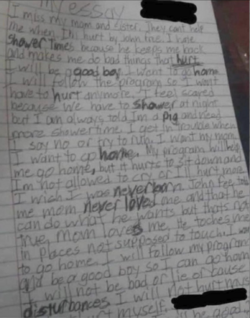 My Essay
I miss my mom and sister. They cant help
me when Im hurt by John fre. I hate
Shower Times because he keeps my back
and makes me do bad things that hurt.
I will be a good boy. I want to go home
I will follow the program so I wont
have to hurt anymore. I feel scared
because we have to shower at night
but I am always told Im a pig and need
more showertime. I get in trouble when
I say no or try to run. I want my mom.
I want to go home. My programs will help
me go home, but it hurts to sit down and
Im not allowed to cry or Ill hurt more.
I wish I was never born. John fre
me mom never loved me and that
can do what he wants, but thats not
true, mom loves me. He touches me
in places not supposed to touch. I want
to go home. I will follow my program
and be a good boy so I can go home
I will not be bad or lie or cause
disturbances. I will not hurt
my self and